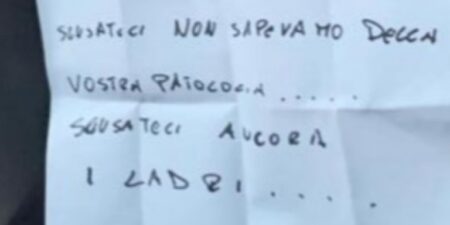 SCUSATECI NON SAPEVAMO DELLA
VOSTRA PATOLOGIA .....
SCUSATECI ANCORA
I LADRI ....